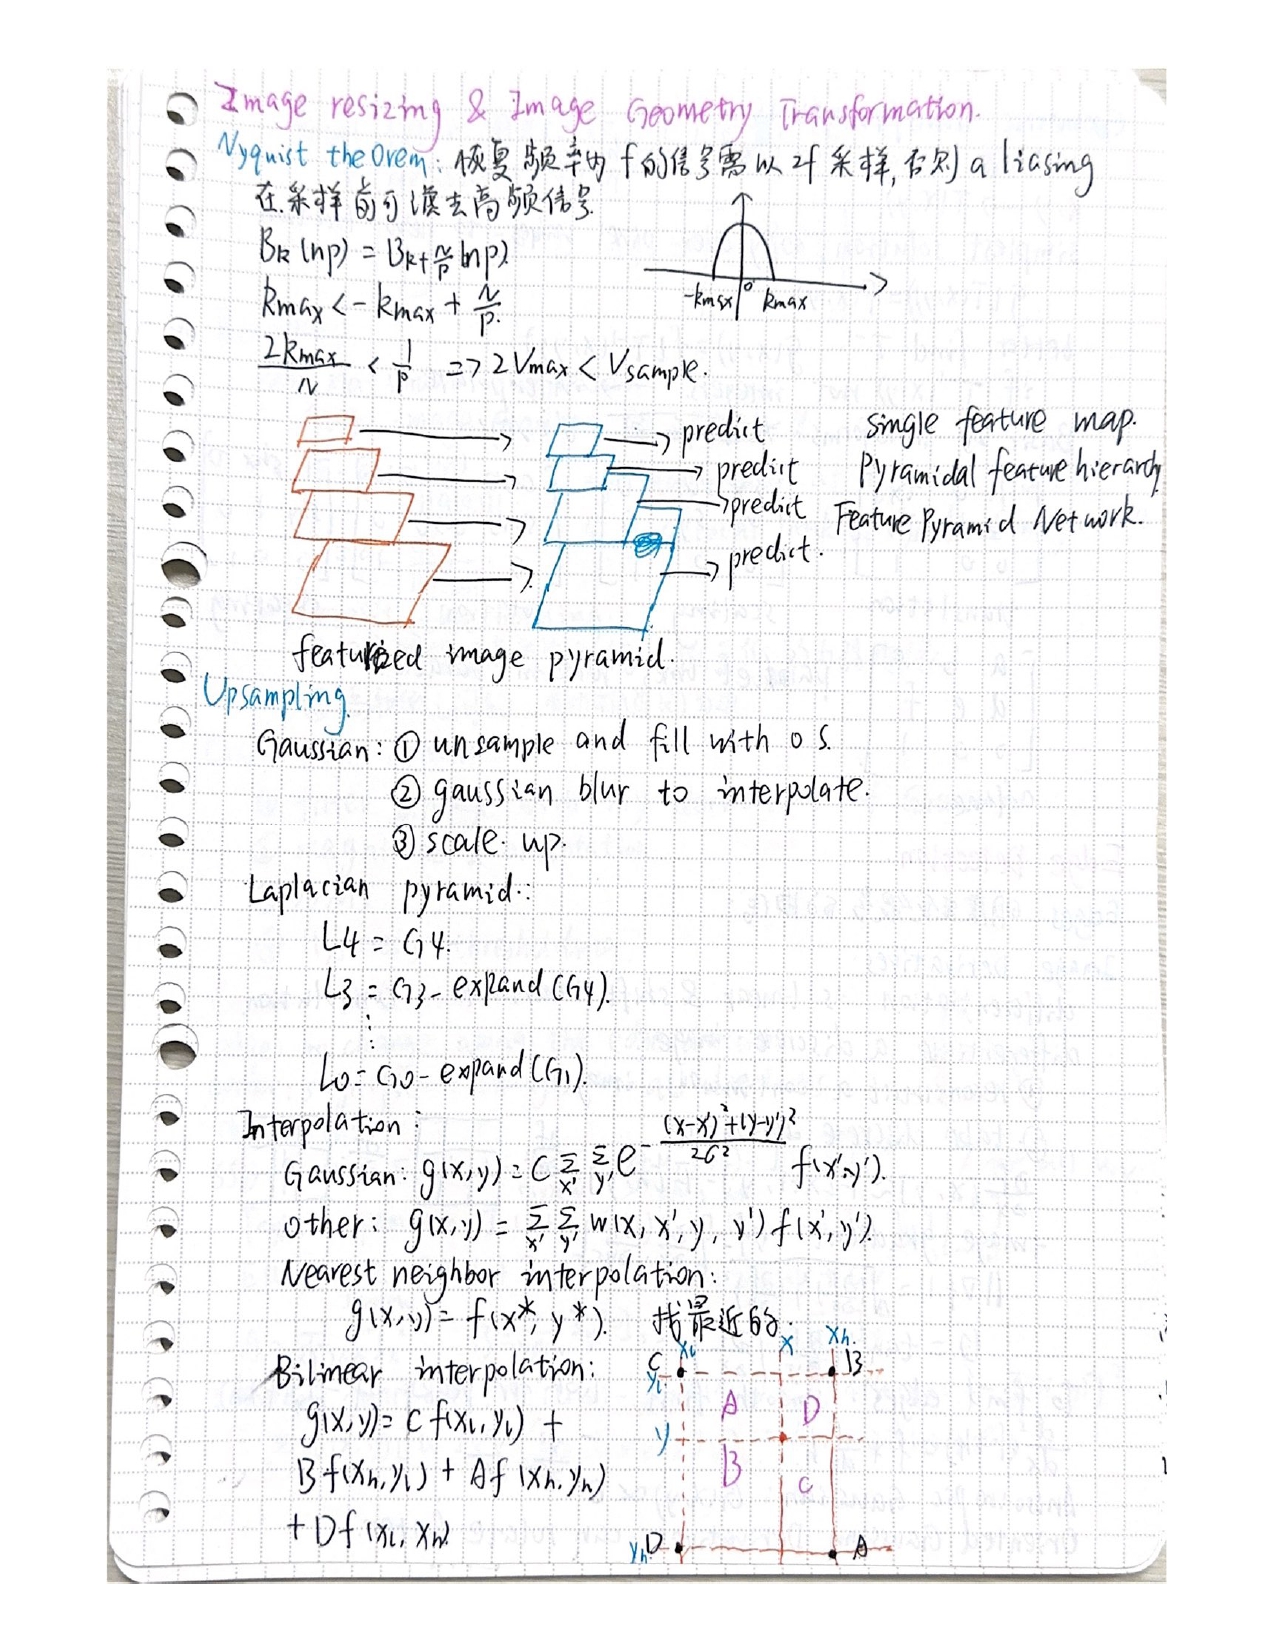 Image resizing & Image Geometry Transformation.
Nyquist theorem: 恢复频率为 f的信号需以 2f 采样, 否则 aliasing
在采样前可滤去高频信号.
Bk (np) = Bk+N/P (np)
-kmax 0 kmax
kmax < -kmax + N/P.
2kmax/N < 1/P => 2Vmax < Vsample.
predict
single feature map.
predict
Pyramidal feature hierarchy
predict
Feature Pyramid Network.
predict.
featurized image pyramid.
Upsampling.
Gaussian: ① unsample and fill with 0 s.
② gaussian blur to interpolate.
③ scale up.
Laplacian pyramid:
L4 = G4.
L3 = G3 - expand (G4).
⋮
L0 = G0 - expand (G1).
Interpolation:
Gaussian: g(x,y) = C Σx' Σy' e^-((x-x')²+(y-y')²/2σ²) f(x',y').
other: g(x,y) = Σx' Σy' w(x, x', y, y') f(x', y').
Nearest neighbor interpolation:
g(x,y) = f(x*, y*). 找最近的.
Bilinear interpolation:
g(x,y) = C f(xl, yl) +
B f(xh, yl) + A f (xh, yh)
+ D f (xl, xh)
C xl x xh. B
yl
A D
y
B C
yh D A